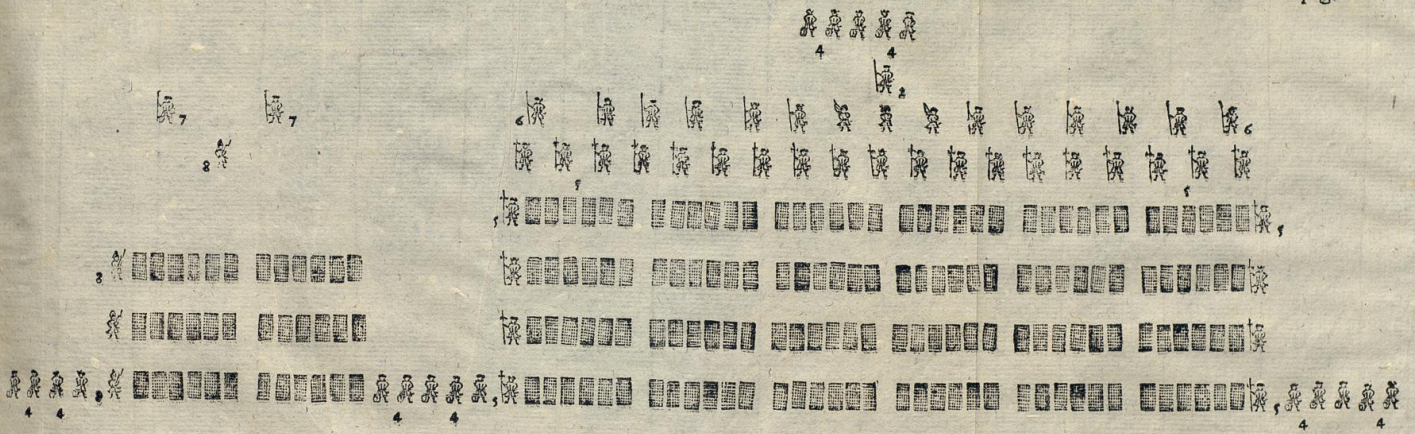 4 4
2
7 7 6 6
8
5 5
5 5
8
8 5 5
4 4 4 4 4 4